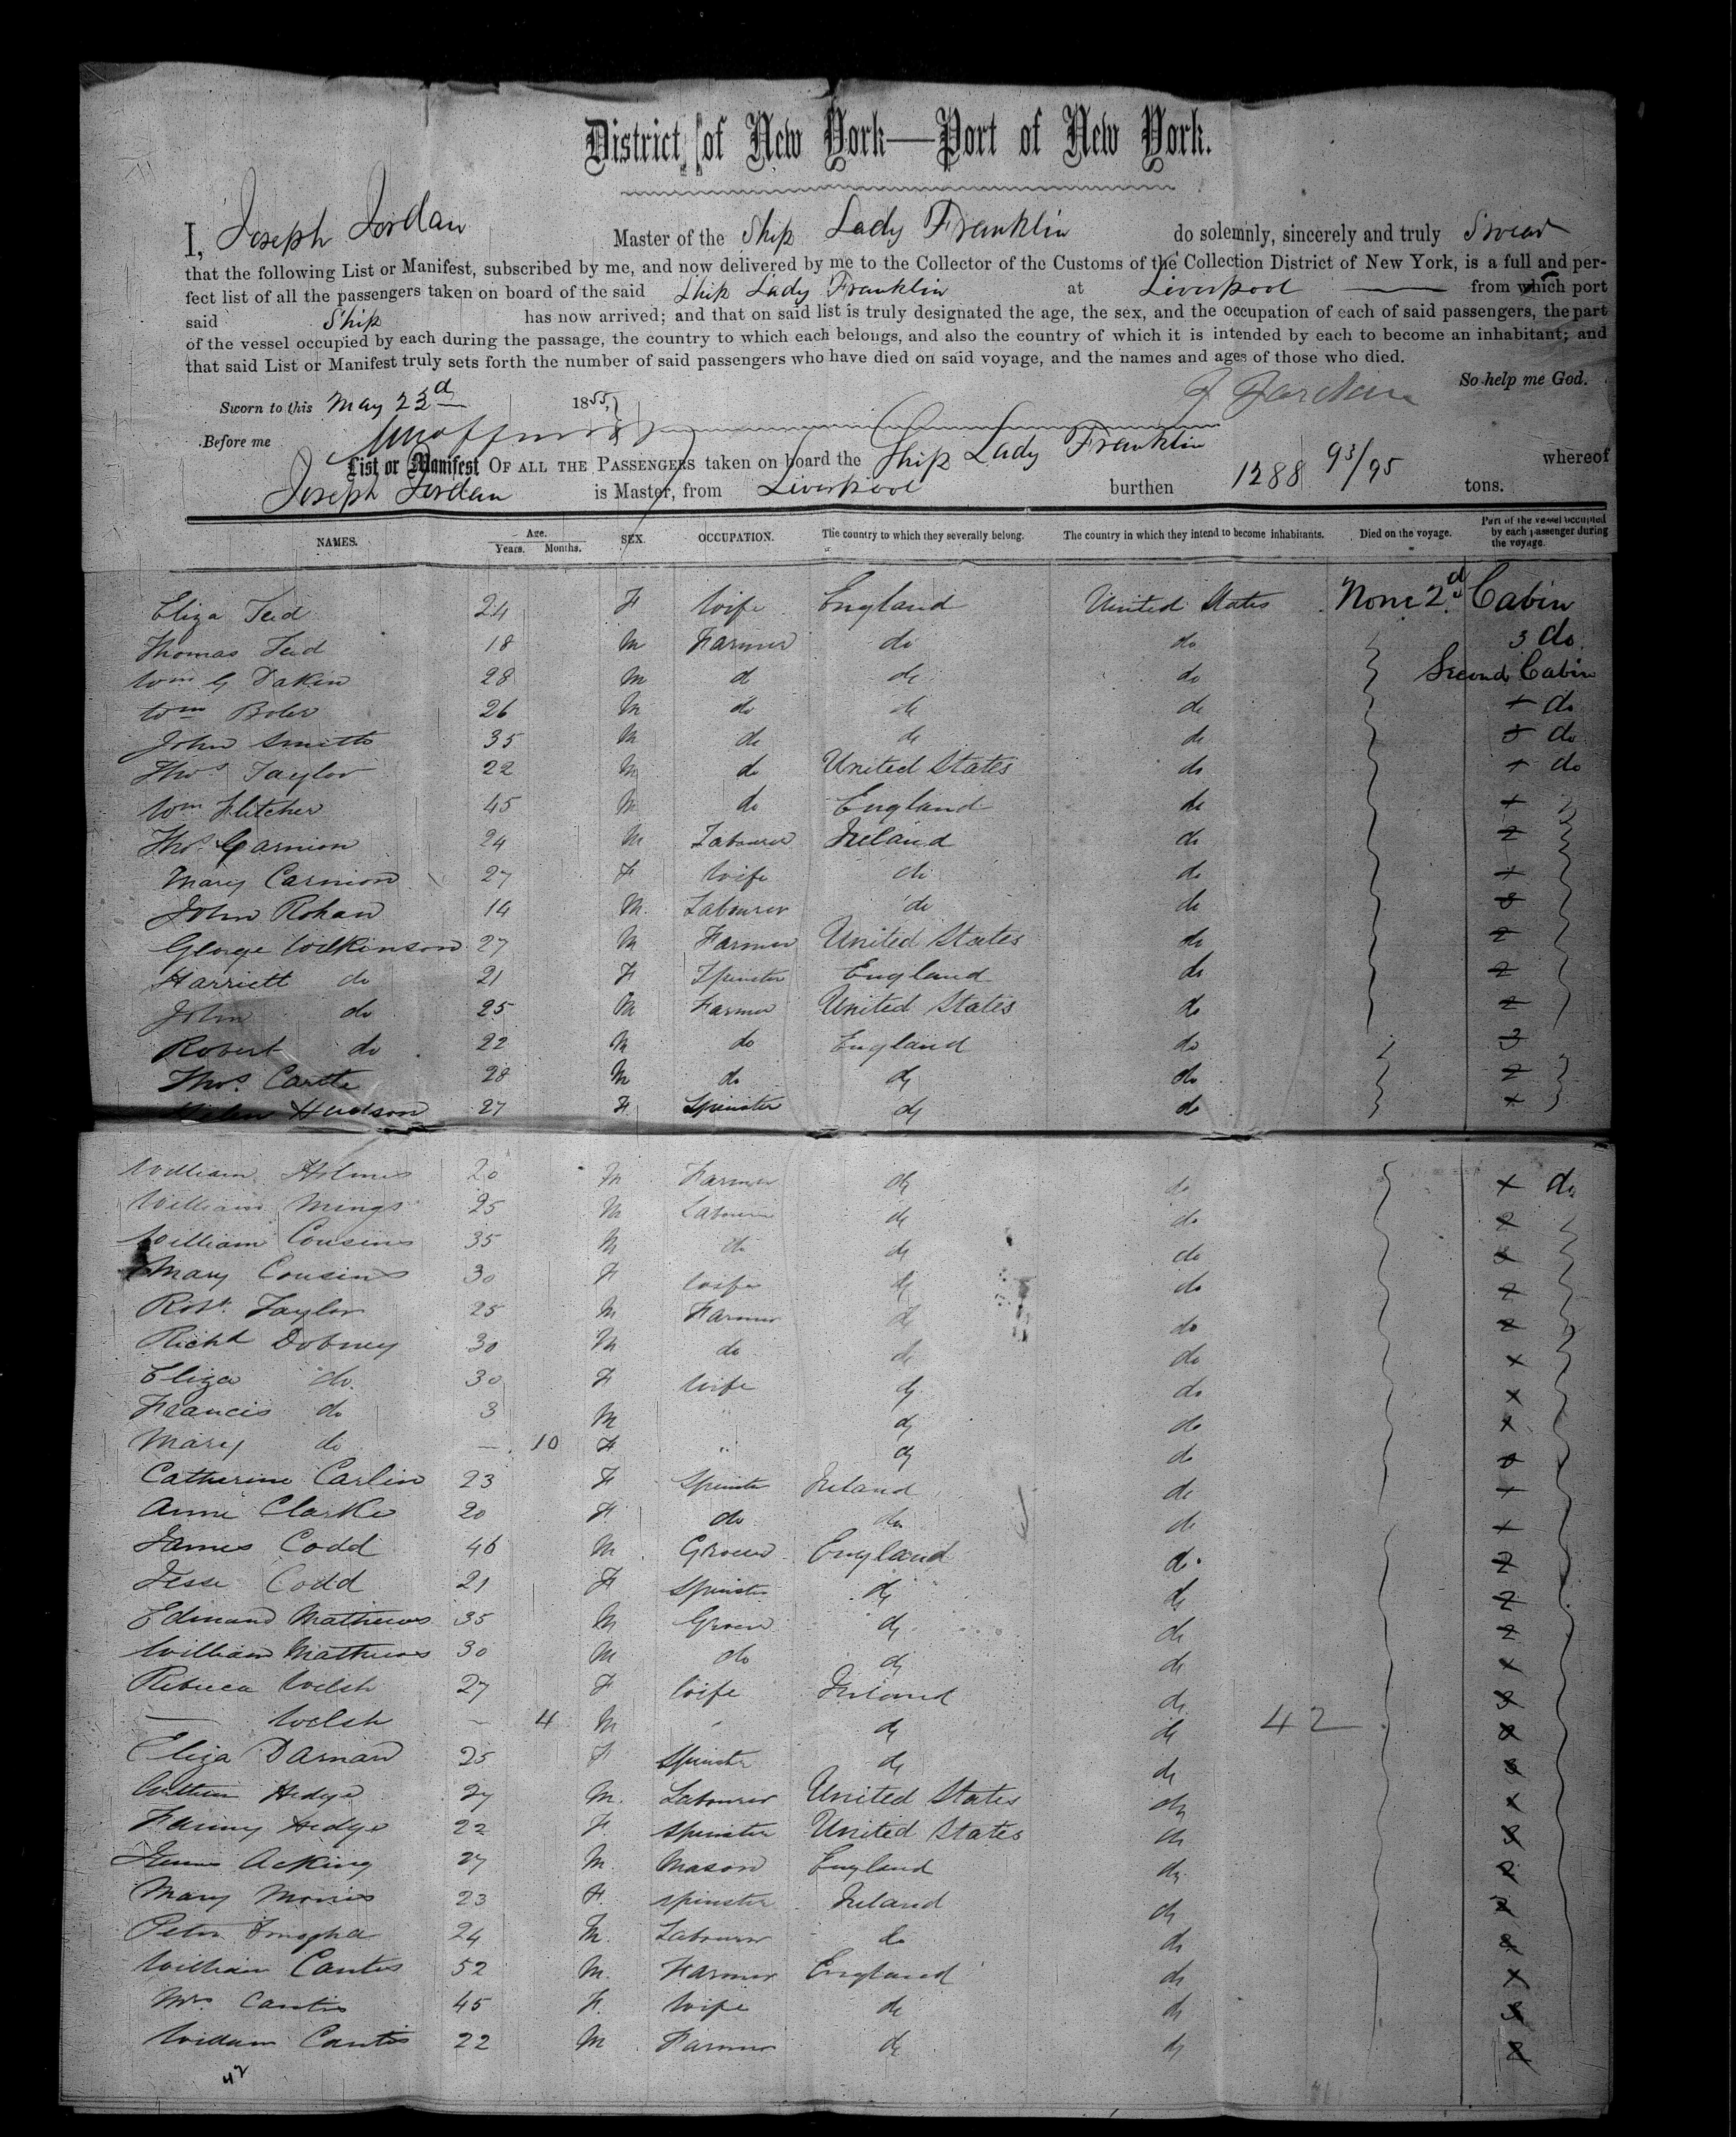 District of New York—Port of New York.
I, Joseph Jordan Master of the Ship Lady Franklin do solemnly, sincerely and truly Swear
that the following List or Manifest, subscribed by me, and now delivered by me to the Collector of the Customs of the Collection District of New York, is a full and per-
fect list of all the passengers taken on board of the said Ship Lady Franklin at Liverpool from which port
said Ship has now arrived; and that on said list is truly designated the age, the sex, and the occupation of each of said passengers, the part
of the vessel occupied by each during the passage, the country to which each belongs, and also the country of which it is intended by each to become an inhabitant; and
that said List or Manifest truly sets forth the number of said passengers who have died on said voyage, and the names and ages of those who died.
So help me God.
Sworn to this May 23d 1855, J Jordan
Before me
List or Manifest OF ALL THE PASSENGERS taken on board the Ship Lady Franklin whereof
Joseph Jordan is Master, from Liverpool burthen 1288 93/95 tons.
NAMES. Age. Years. Months. SEX. OCCUPATION. The country to which they severally belong. The country in which they intend to become inhabitants. Died on the voyage. Part of the vessel occupied by each passenger during the voyage.
Eliza 24 F Wife England United States None 2d Cabin
Thomas 18 M Farmer do do 3 do
Wm G Dakin 28 M d do do Second Cabin
Wm 26 M do do do + do
John Smith 35 M do do do do
Thos Taylor 22 M do United States do + do
Wm Fletcher 45 M do England do +
Thos Carnion 24 M Labourer Ireland do 2
Mary Carnion 27 F Wife do do +
John Rohan 14 M. Labourer do do
George Wilkinson 27 M Farmer United States do 2
Harriett do 21 F Spinster England do 2
John do 25 M Farmer United States do 2
Robert do 22 M do England do 3
Thos. 28 M do do do 2
Hudson 27 F Spinster do do +
William Holmes 20 M Farmer do do x do
William Mings 25 M Labourer do do 2
William Cousins 35 M do do do 3
Mary Cousins 30 F Wife do do 2
Robt. Taylor 25 M Farmer do do 2
Richd Dobney 30 M do do do x
Eliza do. 30 F Wife do do x
Francis do 3 M " do do x
Mary do — 10 F " do do
Catherine Carlin 23 F Spinster Ireland do +
Anne Clarke 20 F do do do +
James Codd 46 M Grocer England do 2
Jesse Codd 21 F Spinster do do 2
Edmund Mathews 35 M Grocer do do 2
William Mathews 30 M do do do x
Rebecca Welsh 27 F Wife Ireland do 3
— Welsh – 4 M do do 42
Eliza Darnan 25 F Spinster do do 3
William Hedge 27 M. Labourer United States do x
Fanny Hedge 22 F Spinster United States do 3
Acking 27 M. Mason England do 2
Mary Morris 23 F Spinster Ireland do 2
Peter 24 M. Labourer do do
William Cantis 52 M. Farmer England do x
Mrs Cantis 45 F. Wife do do 3
William Cantis 22 M Farmer do do 2
42